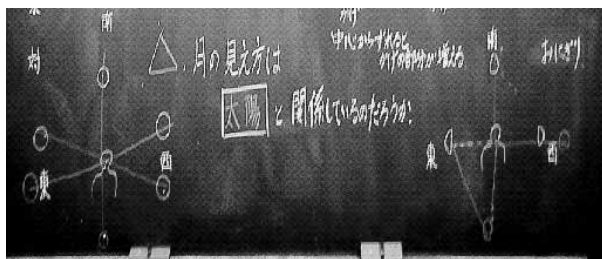 南
対
△、月の見え方は
太陽 と関係しているのだろうか?
東
西
中心からずれると
かげの部分が増える
南
おにぎり
東
西